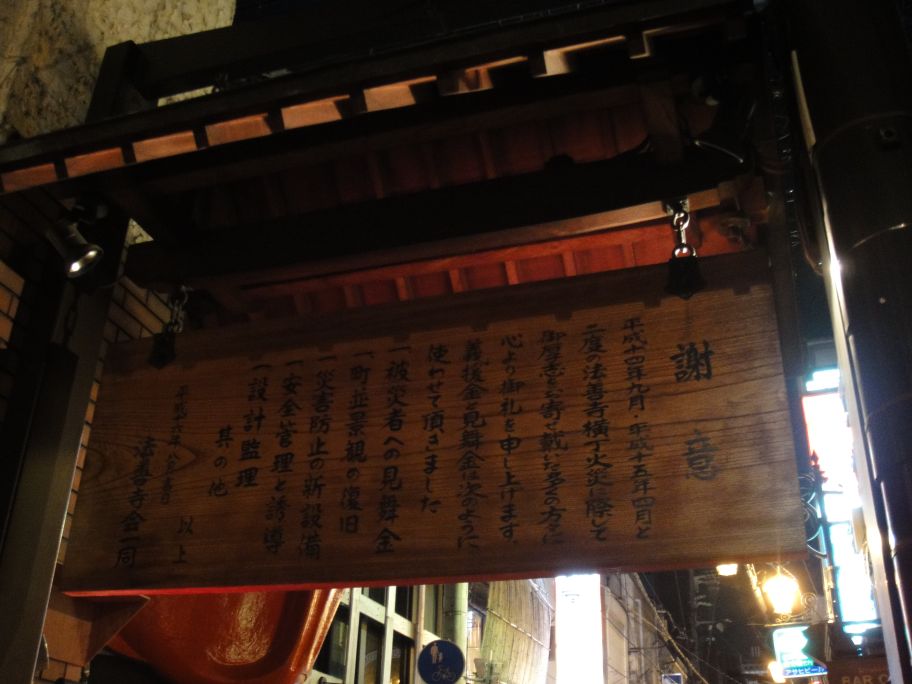 謝意
平成十四年九月・平成十五年四月と
二度の法善寺横丁火災に際して
御厚志をお寄せ戴いた多くの方々に
心より御礼を申し上げます。
義援金、見舞金は次のように
使わせて頂きました
一、被災者への見舞金
一、町並景観の復旧
一、災害防止の新設備
一、安全管理と誘導
一、設計監理
其の他
以上
法善寺会一同
アサヒビール
BAR